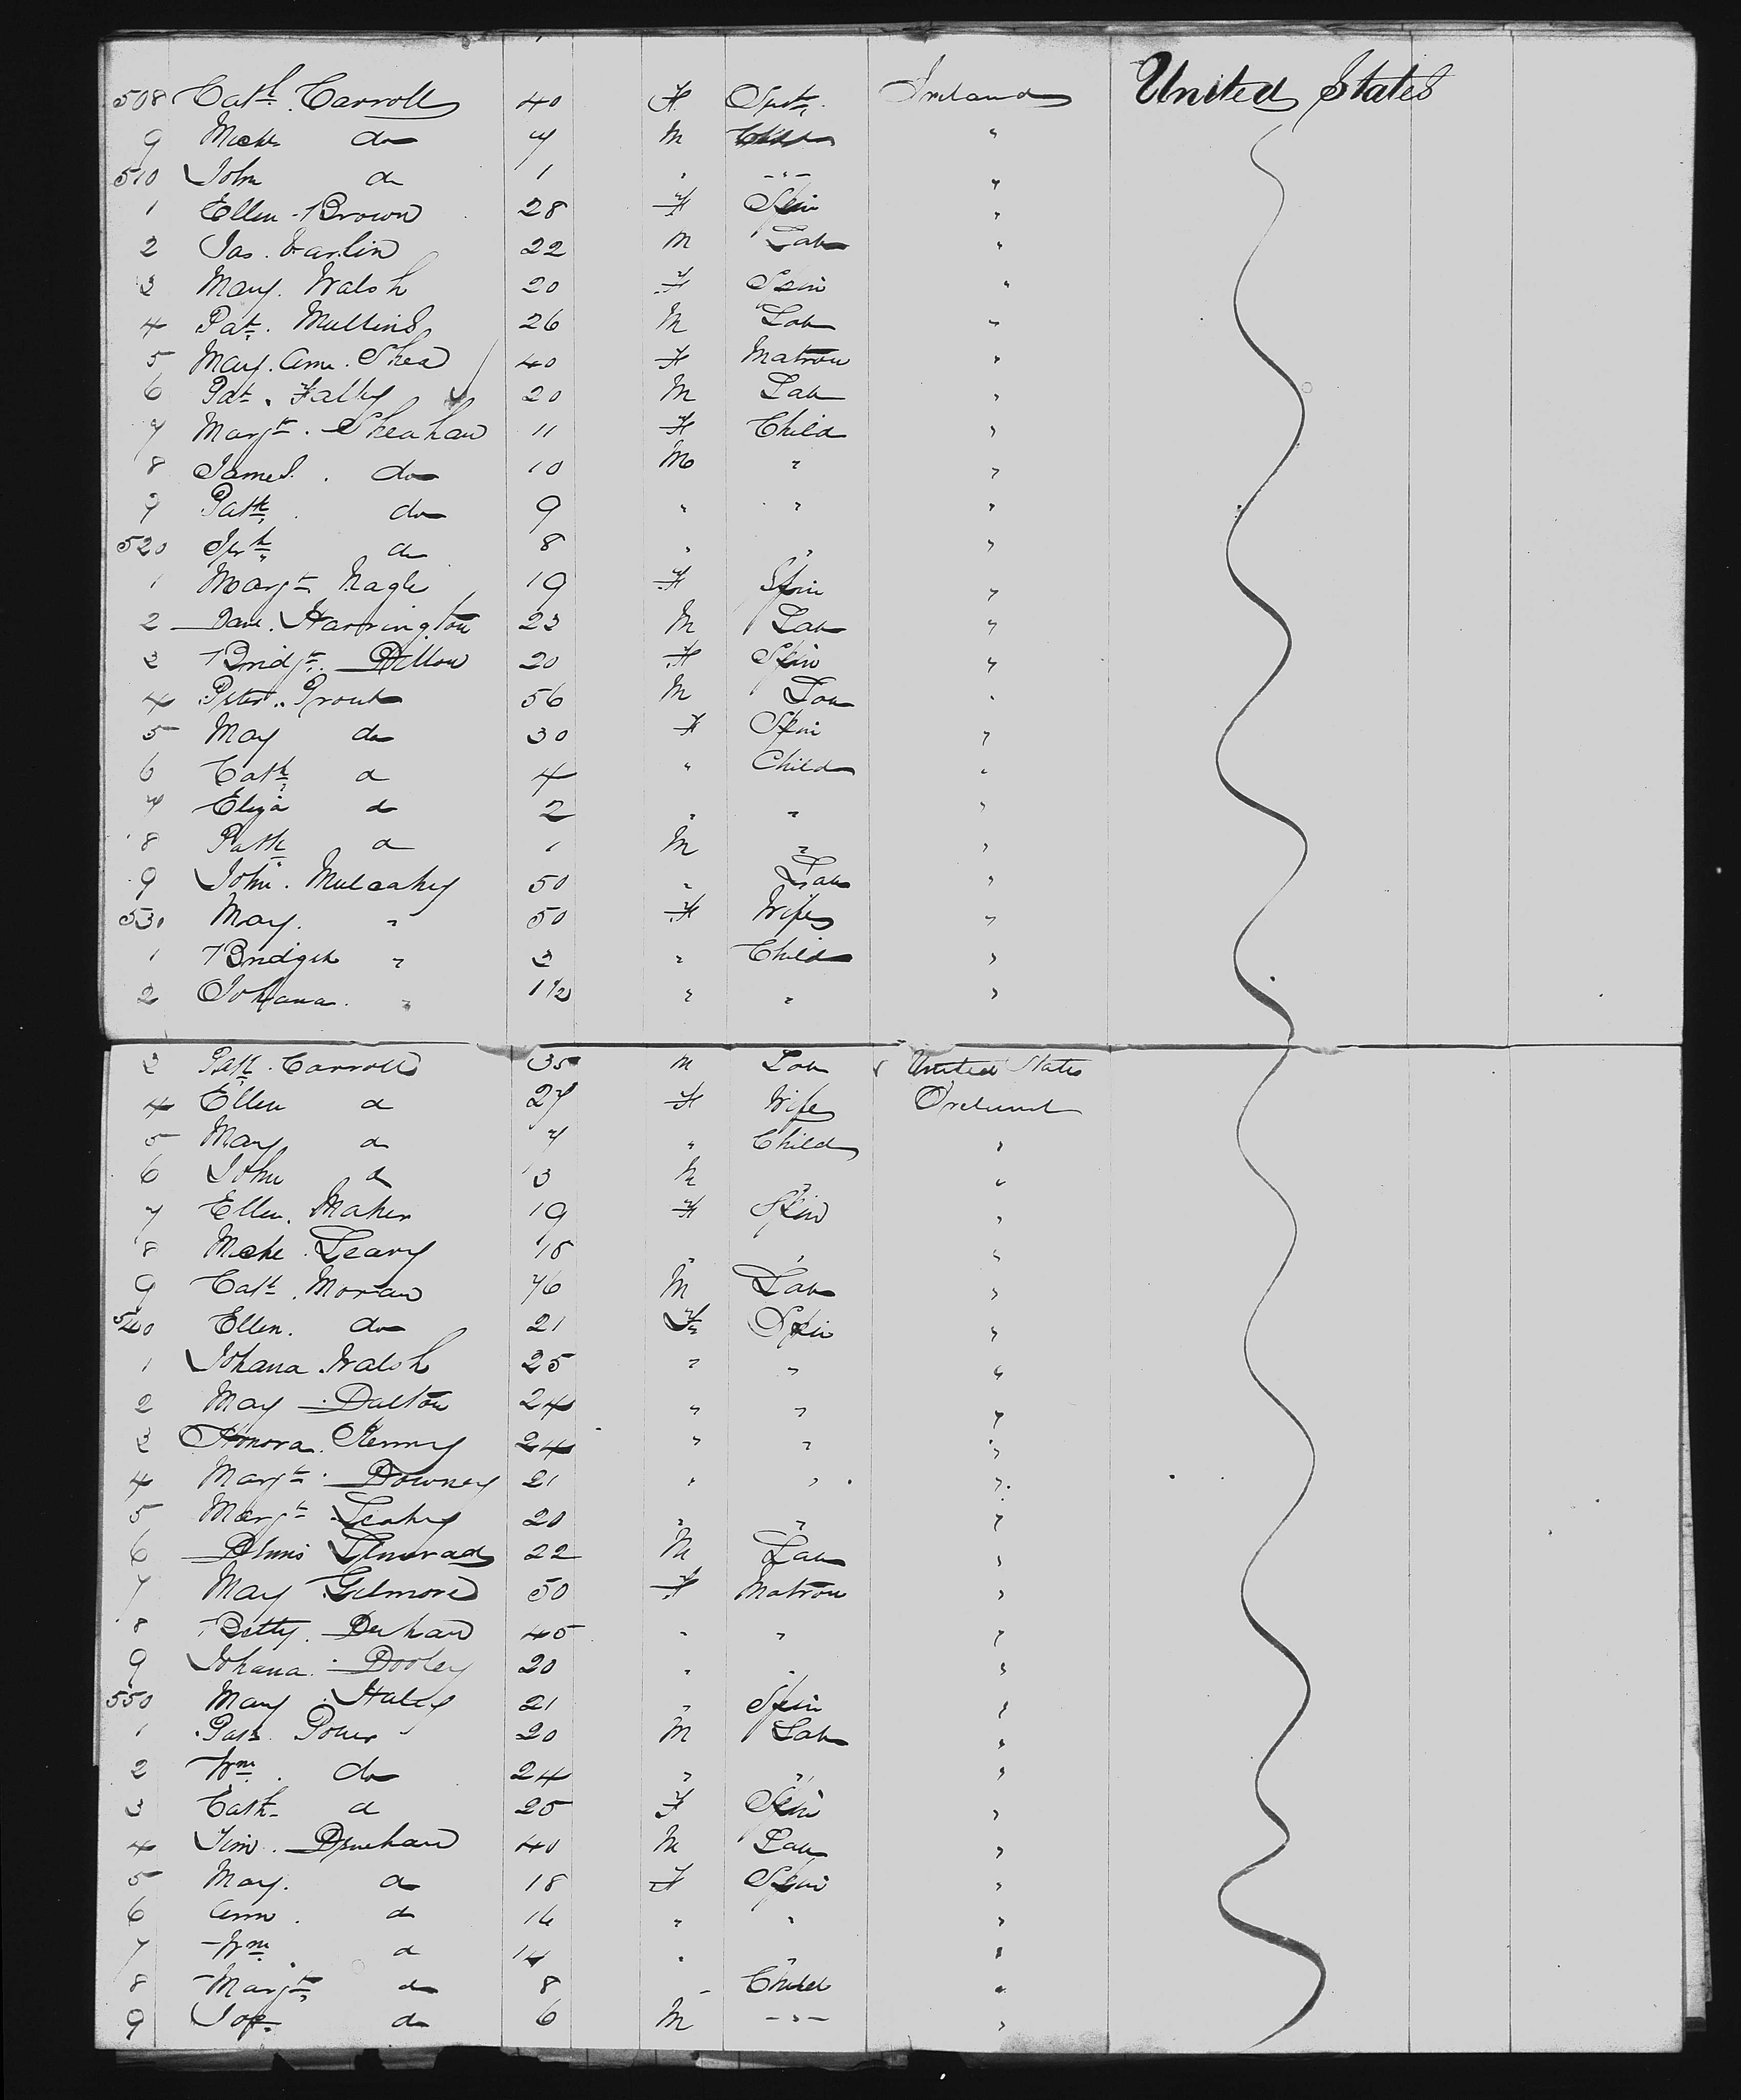 508 Cath. Carroll 40 F Ireland United States
9 Mich do 7 M Child "
510 John do 1 " -"- "
1 Ellen Brown 28 F Spin "
2 Jas. Carlin 22 M Lab "
3 Mary. Walsh 20 F Spin "
4 Pat. Mullins 26 M Lab "
5 Mary. Ann. Shea 40 F Matron "
6 Pat. Falby 20 M Lab "
7 Margt. Sheahan 11 F Child "
8 James. do 10 M " "
9 Patk. do 9 " " "
520 do 8 " " "
1 Margt Nagle 19 F Spin "
2 Danl. Harrington 23 M Lab "
3 Bridgt. Dillon 20 F Spin "
4 Peter. Prout 56 M Lab "
5 Mary do 30 F Spin "
6 Cath do 4 " Child "
7 Eliza do 2 " " "
8 Patk do 1 M " "
9 John. Mulcahy 50 " Lab "
530 Mary. " 50 F Wife "
1 Bridget " 3 " Child "
2 Johana. " 1 1/2 " " "
3 Patk. Carroll 35 M Lab United States
4 Ellen do 27 F Wife Ireland
5 Mary do 7 " Child "
6 John do 3 M " "
7 Ellen. Maher 19 F Spin "
8 Leary 18 " " "
9 Cath. Moran 76 M Lab "
540 Ellen. do 21 F Spin "
1 Johana Walsh 25 " " "
2 Mary Dalton 24 " " "
3 Honora. Kenny 24 " " "
4 Margt. Downey 21 " " "
5 Margt Leahy 20 " " "
6 Dennis 22 M Lab "
7 Mary Gilmore 50 F Matron "
8 Betty. 45 " " "
9 Johana. Dooley 20 " " "
550 Mary Haley 21 " Spin "
1 Patk. Power 20 M Lab "
2 Wm. do 24 " " "
3 Cath. do 25 F Spin "
4 Tim. 40 M Lab "
5 Mary. do 18 F Spin "
6 Ann. do 16 " " "
7 Wm. do 14 " " "
8 Margt do 8 " Child "
9 Jos. do 6 M -"- "